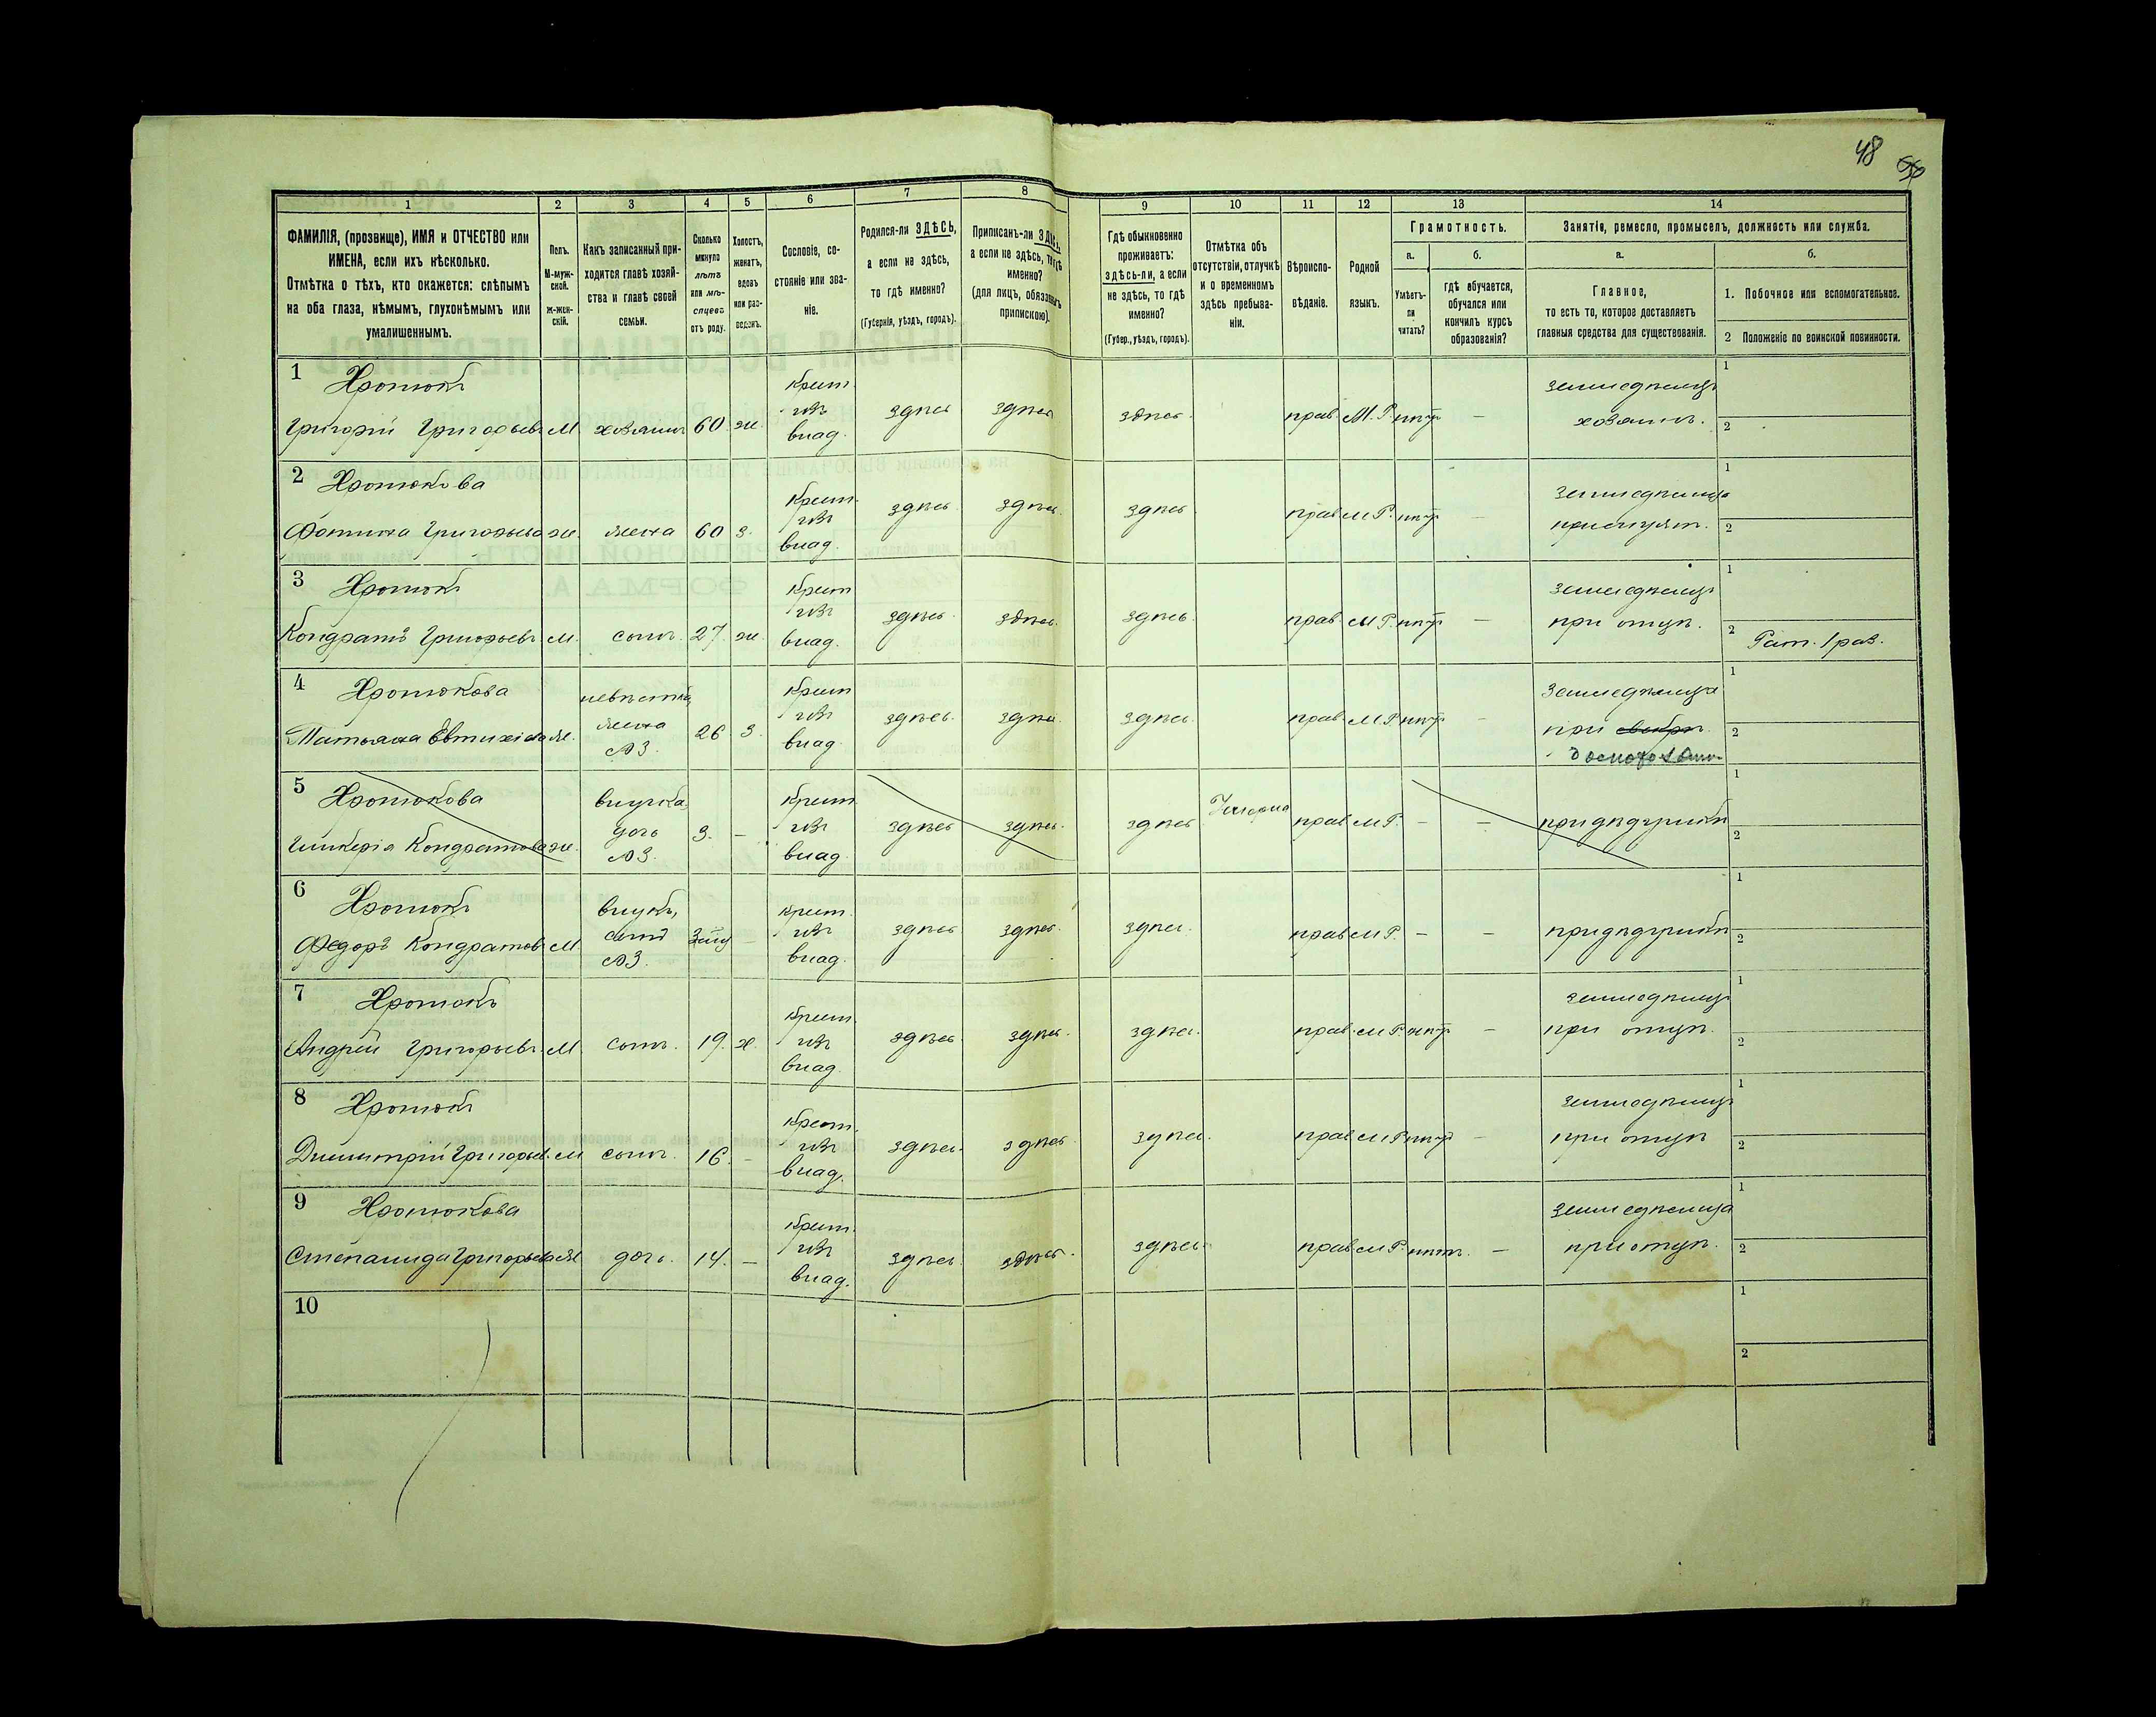 48
1
2
3
4
5
6
7
8
9
10
11
12
13
14
ФАМИЛІЯ, (прозвище), ИМЯ и ОТЧЕСТВО или
ИМЕНА, если ихъ нѣсколько.
Отмѣтка о тѣхъ, кто окажется: слѣпымъ
на оба глаза, нѣмымъ, глухонѣмымъ или
умалишеннымъ.
Полъ.
М-муж-
ской.
ж-жен-
скій.
Какъ записанный при-
ходится главѣ хозяй-
ства и главѣ своей
семьи.
Сколько
минуло
лѣтъ
или мѣ-
сяцевъ
отъ роду.
Холостъ,
женатъ,
вдовъ
или раз-
веденъ.
Сословіе, со-
стояніе или зва-
ніе.
Родился-ли ЗДѢСЬ,
а если не здѣсь,
то гдѣ именно?
(Губернія, уѣздъ, городъ).
Приписанъ-ли ЗДѢСЬ,
а если не здѣсь, то гдѣ
именно?
(для лицъ, обязанныхъ
припискою).
Гдѣ обыкновенно
проживаетъ:
здѣсь-ли, а если
не здѣсь, то гдѣ
именно?
(Губер., уѣздъ, городъ).
Отмѣтка объ
отсутствіи, отлучкѣ
и о временномъ
здѣсь пребыва-
ніи.
Вѣроиспо-
вѣданіе.
Родной
языкъ.
Грамотность.
а.
б.
Умѣетъ-
ли
читать?
гдѣ обучается,
обучался или
кончилъ курсъ
образованія?
Занятіе, ремесло, промыселъ, должность или служба.
а.
б.
Главное,
то есть то, которое доставляетъ
главныя средства для существованія.
1. Побочное или вспомогательное.
2 Положеніе по воинской повинности.
1 Хротюкъ
Григорій Григорьевъ М хозяинъ 60 ж.
Крест. изъ влад. здѣсь здѣсь здѣсь. прав. М.Р. нѣтъ —
земледѣлецъ хозяинъ.
1
2
2 Хротюкова
Фотина Григорьева ж. жена 60 з.
Крест. изъ влад. здѣсь здѣсь. здѣсь прав. М.Р. нѣтъ —
земледѣлица
1
2
3 Хротюкъ
Кондратъ Григорьевъ М. сынъ. 27. ж.
Крест изъ влад. здѣсь. здѣсь. здѣсь. прав. М.Р. нѣтъ —
земледѣлецъ при отцѣ.
1
2 Рат. 1 раз.
4 Хротюкова
Татьяна Евтихіева ж. невѣстка, жена №3 26 з.
Крест изъ влад. здѣсь. здѣсь здѣсь. прав. М.Р. нѣтъ —
земледѣлица при свекрѣ.
1
2
5 Хротюкова
Гликерія Кондратова ж. внучка, дочь №3. 3. —
Крест. изъ влад здѣсь здѣсь. здѣсь Умерла прав. М.Р. — —
при дѣдушкѣ
1
2
6 Хротюкъ
Федоръ Кондратовъ М. внукъ, сынъ №3. —
Крест. изъ влад. здѣсь здѣсь. здѣсь. прав. М.Р. — —
при дѣдушкѣ
1
2
7 Хротюкъ
Андрей Григорьевъ. М. сынъ. 19. х.
Крест. изъ влад. здѣсь здѣсь. здѣсь. прав. М.Р. нѣтъ —
земледѣлецъ при отцѣ.
1
2
8 Хротюкъ
Димитрій Григорьев. М сынъ. 16. —
Крест. изъ влад. здѣсь. здѣсь здѣсь. прав. М.Р. нѣтъ —
земледѣлецъ при отцѣ
1
2
9 Хротюкова
Степанида Григорьева ж дочь. 14. —
Крест. изъ влад. здѣсь. здѣсь. здѣсь. прав. М.Р. нѣтъ. —
земледѣлица при отцѣ.
1
2
10
1
2